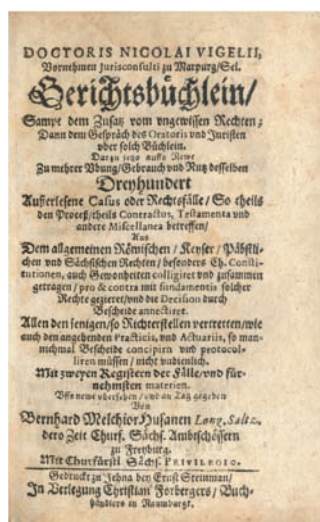 DOCTORIS NICOLAI VIGELII,
Vornehmen Jurisconsulti zu Marpurg/Sel.
Gerichtsbüchlein/
Sampt dem Zusatz vom vngewissen Rechten;
Dann dem Gespräch des Oratoris vnd Juristen
vber solch Büchlein.
Darzu jetzo auffs Newe
Zu mehrer Vbung/Gebrauch vnd Nutz desselben
Dreyhundert
Außerlesene Casus oder Rechtsfälle/So theils
den Proceß/theils Contractus, Testamenta vnd
andere Miscellanea betreffen/
Aus
Dem allgemeinen Römischen/Keyser/Päbstli-
chen vnd Sächsischen Rechten/besonders Ch. Consti-
tutionen, auch Gewonheiten colligiret vnd zusammen
getragen/pro & contra mit fundamentis solcher
Rechte gezieret/vnd die Decision durch
Bescheide annectiret.
Allen den jenigen/so Richterstellen vertretten/wie
auch den angehenden Practicis, vnd Actuariis, so man-
nichmal Bescheide concipirn vnd protocol-
liren müssen/nicht vndienlich.
Mit zweyen Registern der Fälle/vnd für-
nehmsten materien.
Vffs newe vbersehen/vnd an Tag gegeben
Von
Bernhard Melchior Husanen Long. Saltz.
dero Zeit Churf. Sächs. Ambtschössern
zu Freyburg.
Mit Churfürstl Sächs. PRIVILEGIO.
Gedruckt zu Jehna bey Ernst Steinman/
In Verlegung Christian Forbergers/Buch-
händlers in Naumburgk.